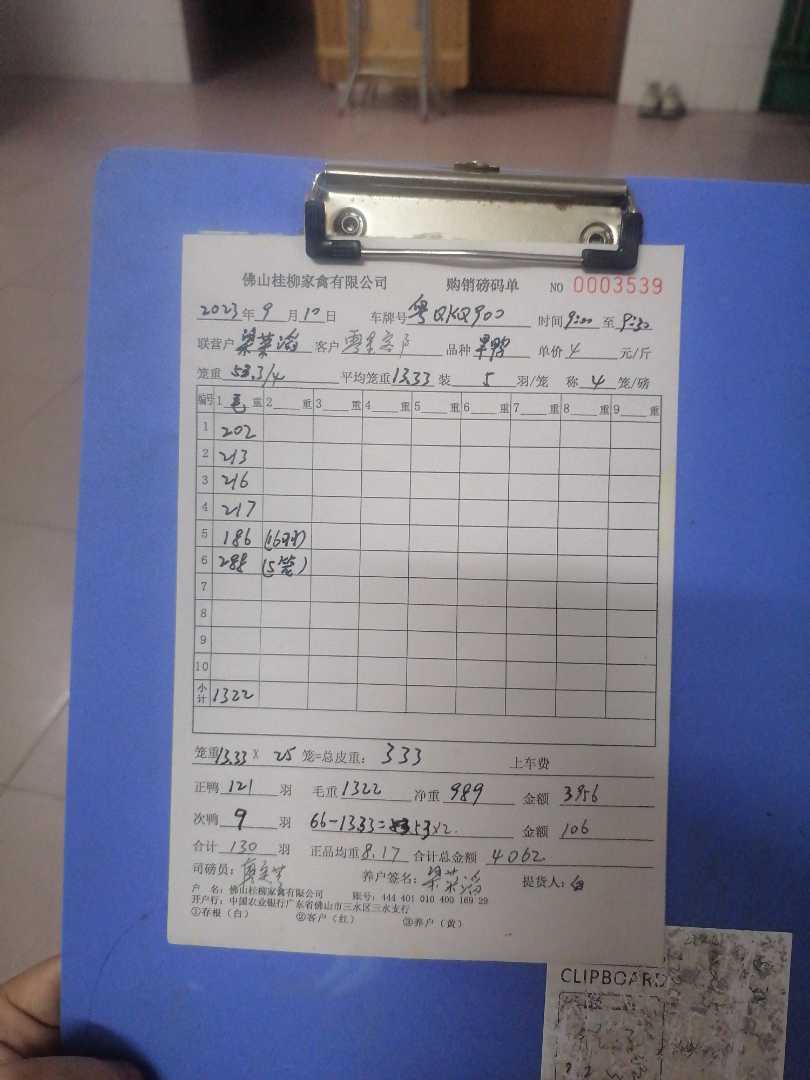 佛山桂柳家禽有限公司 购销磅码单 NO 0003539
2023年9月10日 车牌号粤QKQ900 时间9:00至9:30
联营户 客户 品种 单价4元/斤
笼重53.3/4 平均笼重13.33装5羽/笼 称4笼/磅
编号 1毛重 2重 3重 4重 5重 6重 7重 8重 9重
1 202
2 213
3 216
4 217
5 186 (16羽)
6 288 (5笼)
7
8
9
10
小计 1322
笼重13.33×25笼=总皮重:333 上车费
正鸭121羽 毛重1322 净重989 金额3956
次鸭9羽 66-13.33=53×2 金额106
合计130羽 正品均重8.17 合计总金额4062
司磅员: 养户签名: 提货人:
户 名:佛山桂柳家禽有限公司 账号:444 401 010 400 169 29
开户行:中国农业银行广东省佛山市三水区三水支行
①存根(白) ②客户(红) ③养户(黄)
CLIPBOARD